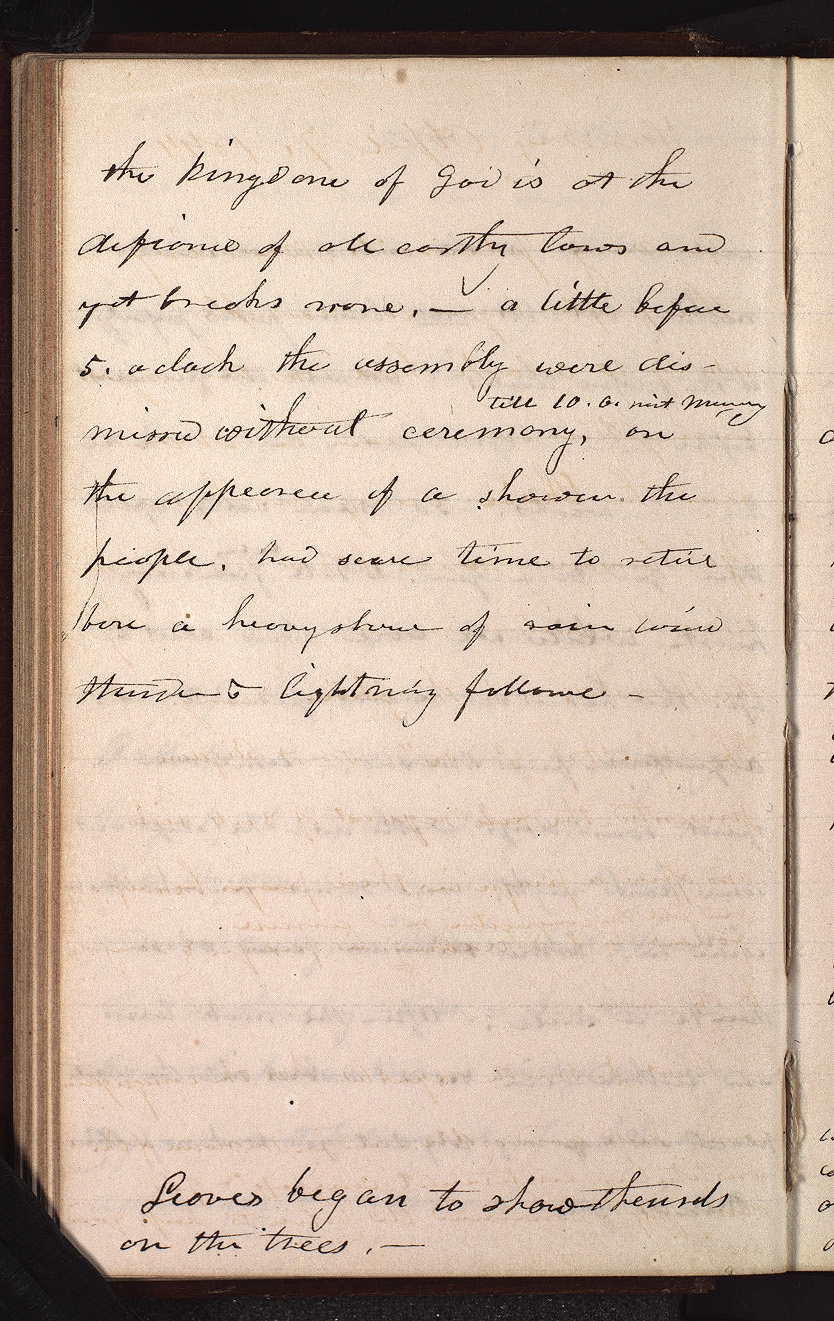 the kingdome of God is at the
defience of all earthly laws and
yet breaks none. — a little before
5. oclock the assembly were dis-
till 10. o. next
missed without ceremony, on
the appearence of a shower. the
people. had scare time to retire
bore a heavy showe of rain wind
thunder & lightning followe —
Leaves began to show themselves
on the trees. —